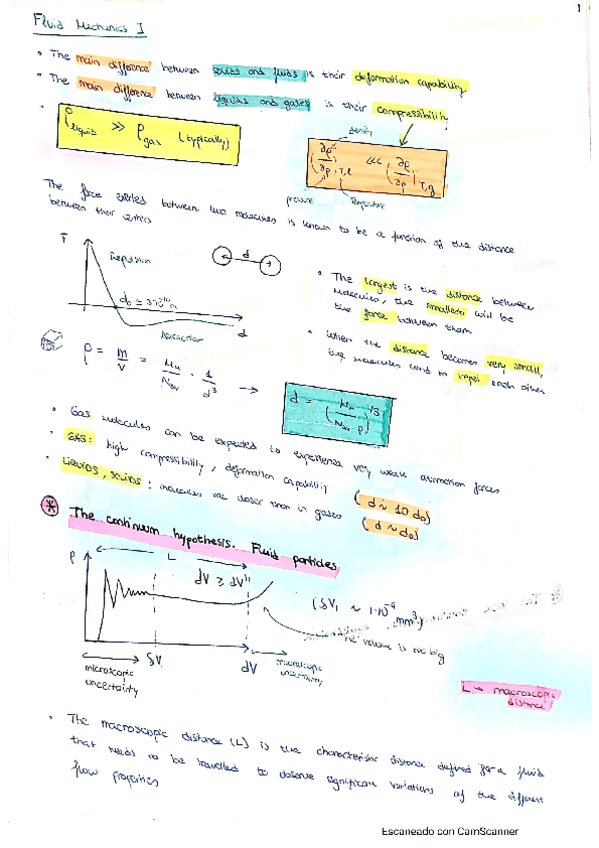 1
Fluid Mechanics I
• The main difference between solids and fluids is their deformation capability
• The main difference between liquids and gases is their compressibility
• ρliquid >> ρgas (typically)
density
(∂ρ/∂p)T,l <<< (∂ρ/∂p)T,g
pressure temperature
The force exerted between two molecules is known to be a function of the distance
between their centers
F
Repulsion
d
d₀ ≈ 3·10⁻¹⁰ m
Attraction
d
• The largest is the distance between
molecules, the smallest will be
the force between them
• When the distance becomes very small,
the molecules tend to repel each other
ρ = m/V = · 1/d³ →
d = ( )1/3
• Gas molecules can be expected to experience very weak attraction forces
• GAS: high compressibility, deformation capability (d ~ 10 d₀)
• LIQUIDS, SOLIDS: molecules are closer than in gases (d ~ d₀)
* The continuum hypothesis. Fluid particles
ρ
L
(δV₁ ~ 1·10⁻⁹ mm³)
The volume is too big
δV
dV
microscopic
uncertainty
macroscopic
uncertainty
L → macroscopic
distance
• The macroscopic distance (L) is the characteristic distance defined for a fluid
that needs to be travelled to observe significant variations of the different
flow properties
Escaneado con CamScanner